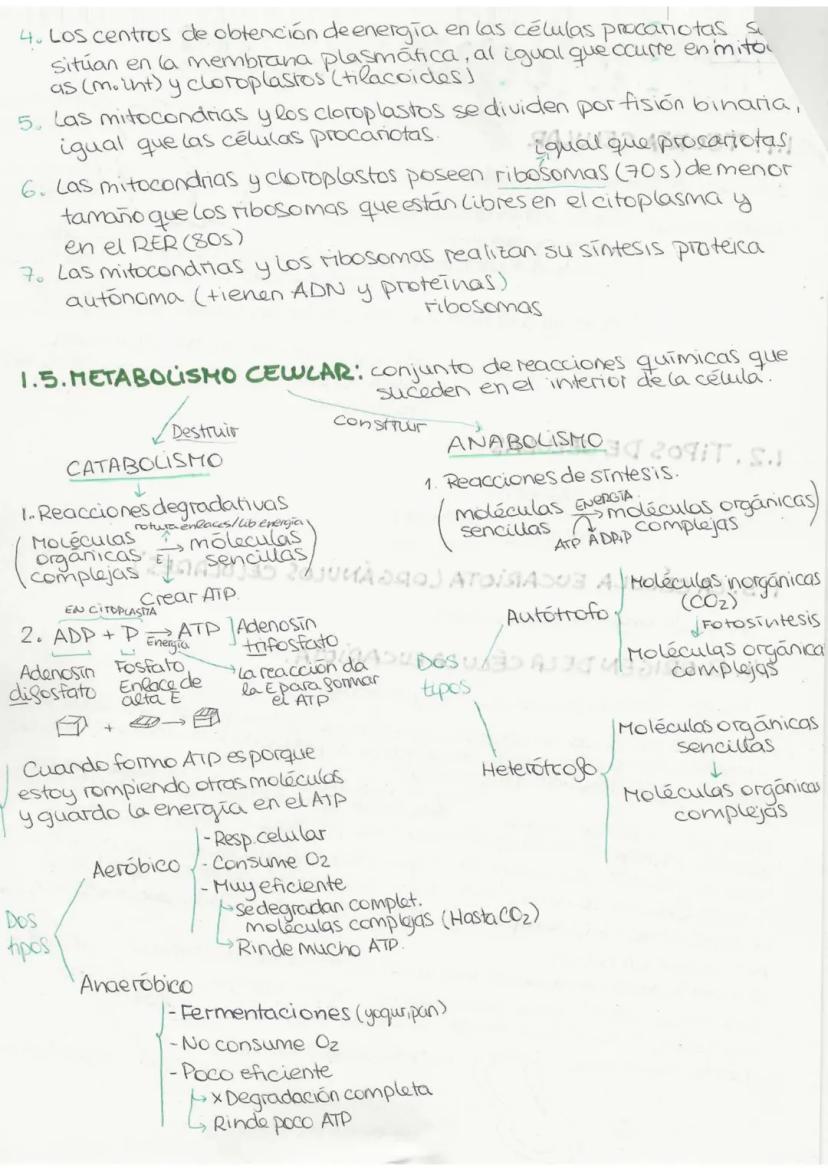 4. Los centros de obtención de energía en las células procariotas
sitúan en la membrana plasmática, al igual que ocurre en
as (m.int) y cloroplastos (tilacoides)
5. Las mitocondrias y los cloroplastos se dividen por fisión binaria,
igual que las células procariotas.
igual que procariotas
6. Las mitocondrias y cloroplastos poseen ribosomas (70s) de menor
tamaño que los ribosomas que están libres en el citoplasma y
en el RER (80s)
7. Las mitocondrias y los ribosomas realizan su síntesis proteica
autónoma (tienen ADN y proteínas)
ribosomas
1.5. METABOLISMO CELULAR: conjunto de reacciones químicas que
suceden en el interior de la célula.
Destruir
Construir
CATABOLISMO
1. Reacciones degradativas
rotura enlaces/lib energía
(Moléculas → moléculas
orgánicas E sencillas)
complejas
Crear ATP
EN CITOPLASMA
2. ADP + P → ATP ] Adenosín
Energía trifosfato
Adenosín Fosfato
difosfato Enlace de
alta E
la reacción da
la E para formar
el ATP
+ →
Cuando formo ATP es porque
estoy rompiendo otras moléculas
y guardo la energía en el ATP
Dos
tipos
Aeróbico
- Resp. celular
- Consume O2
- Muy eficiente
se degradan complet.
moléculas complejas (Hasta CO2)
Rinde mucho ATP.
Anaeróbico
- Fermentaciones (yogur, pan)
- No consume O2
- Poco eficiente
x Degradación completa
Rinde poco ATP
ANABOLISMO
1. Reacciones de síntesis.
(moléculas ENERGÍA → moléculas orgánicas)
sencillas complejas
ATP ADP+P
Dos
tipos
Autótrofo
Moléculas inorgánicas
(CO2)
Fotosíntesis
Moléculas orgánica
complejas
Heterótrofo
Moléculas orgánicas
sencillas
Moléculas orgánicas
complejas